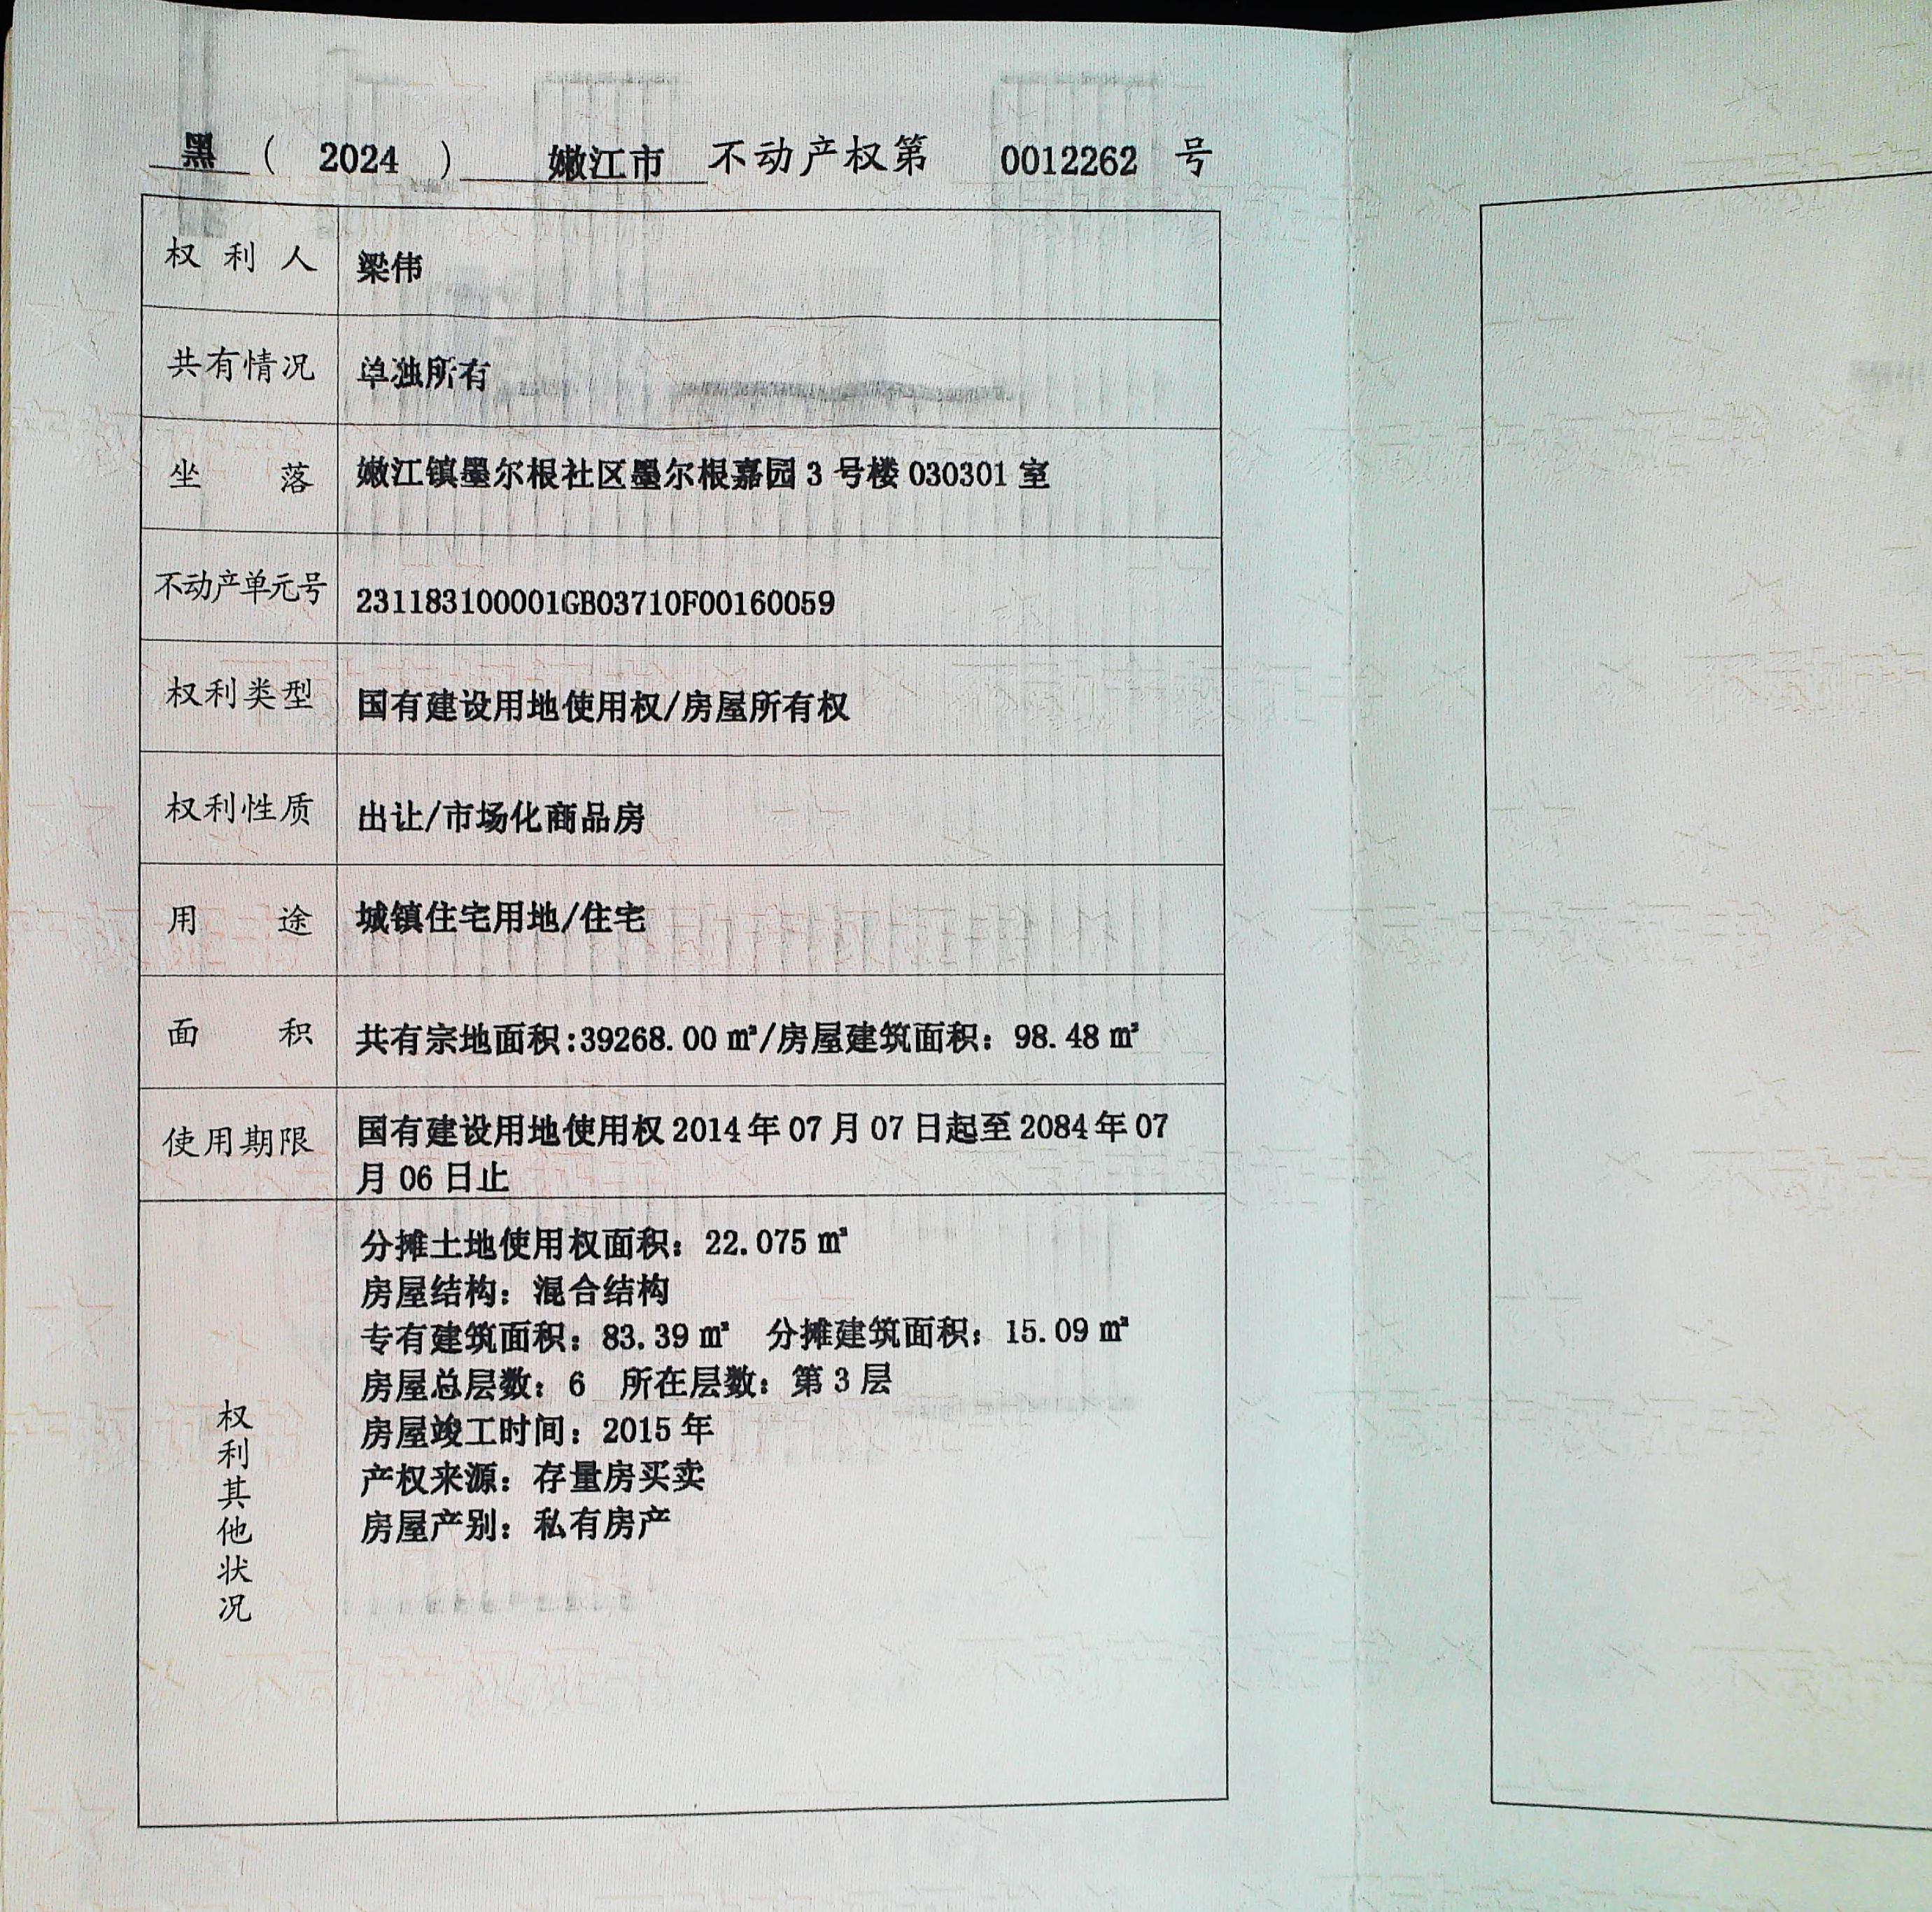 黑 ( 2024 ) 嫩江市 不动产权第 0012262 号
权利人 梁伟
共有情况 单独所有
坐落 嫩江镇墨尔根社区墨尔根嘉园 3 号楼 030301 室
不动产单元号 231183100001GB03710F00160059
权利类型 国有建设用地使用权/房屋所有权
权利性质 出让/市场化商品房
用途 城镇住宅用地/住宅
面积 共有宗地面积:39268.00 ㎡/房屋建筑面积：98.48 ㎡
使用期限 国有建设用地使用权 2014 年 07 月 07 日起至 2084 年 07
月 06 日止
权利其他状况
分摊土地使用权面积：22.075 ㎡
房屋结构：混合结构
专有建筑面积：83.39 ㎡ 分摊建筑面积：15.09 ㎡
房屋总层数：6 所在层数：第 3 层
房屋竣工时间：2015 年
产权来源：存量房买卖
房屋产别：私有房产